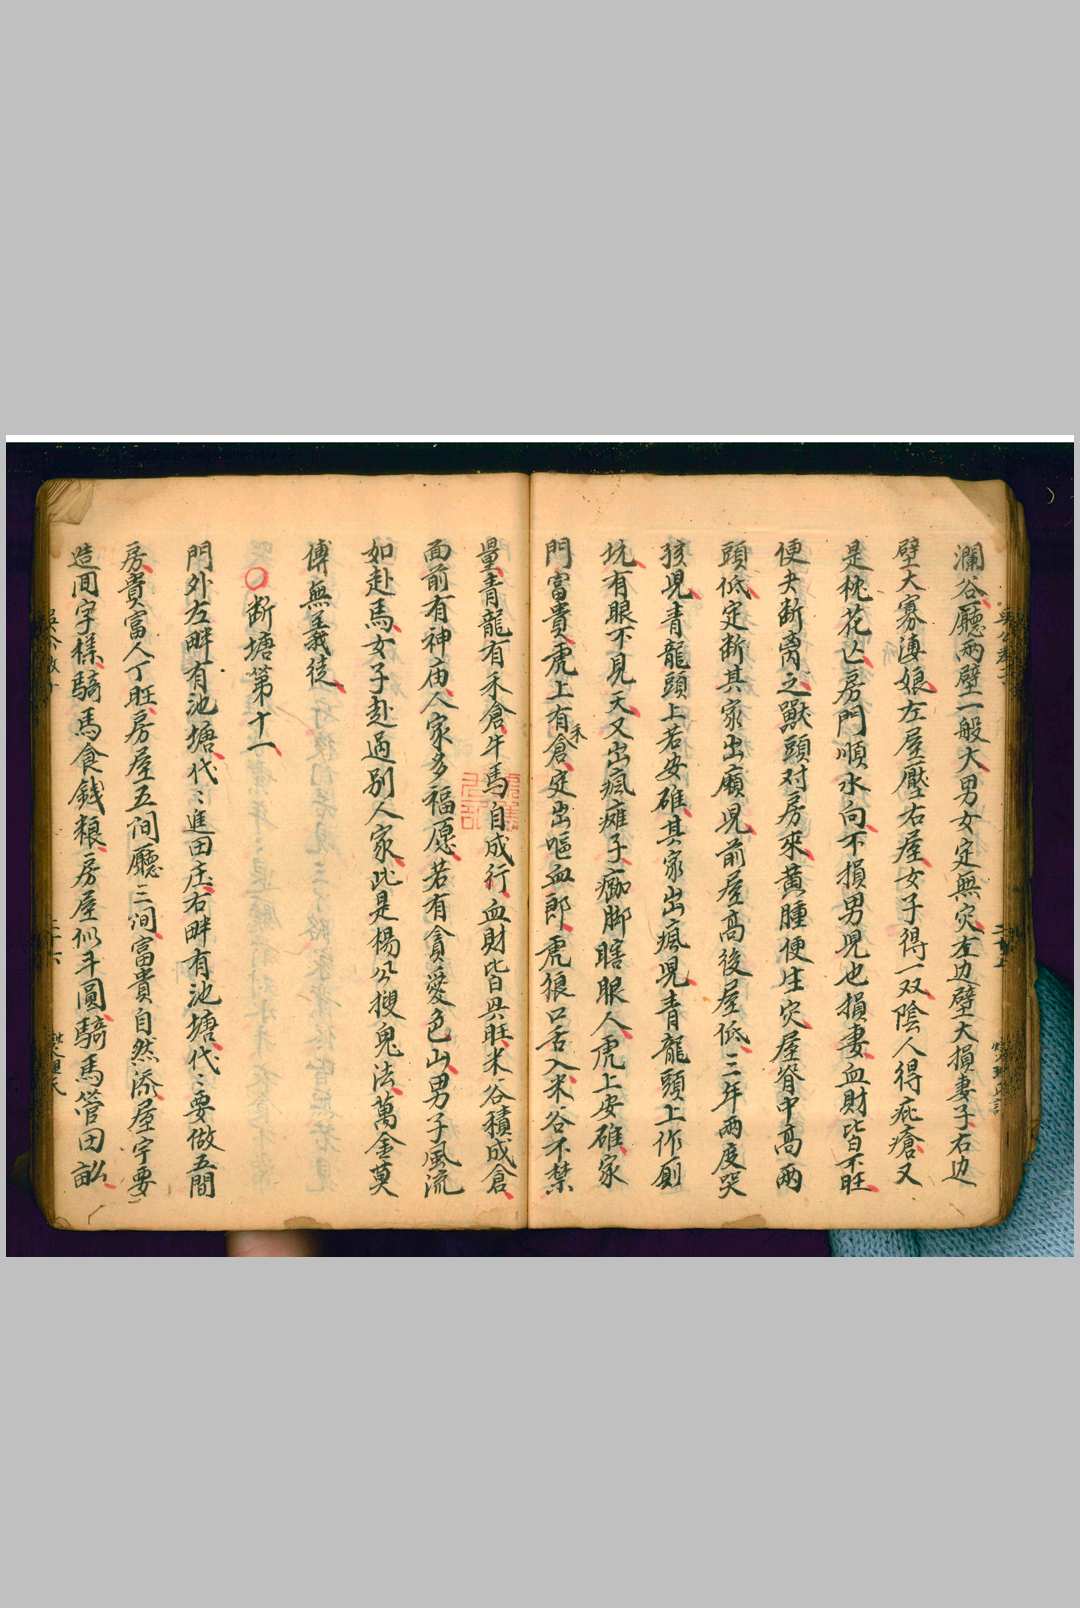 瀾谷廳両壁一般大男女定無灾左边壁大損妻子右边
壁大寡慱娘左屋壓右屋女子得一双陰人得疕瘡又
是枕花亾房門順水向不損男児也損妻血財皆不旺
便夫断离之獸頭对房來黄腫便生灾屋脊中高両
頭低定断其家出廟児前屋高後屋低三年両度哭
孩児青龍頭上若安碓其家出瘋児青龍頭上作厠
坑有眼不見天又出瘋瘫子痂脚瞎眼人虎上安碓家
門富貴虎上有禾倉定出嘔血郎虎狼口舌入米谷不禁
量青龍有禾倉牛馬自成行血財皆興旺米谷積成倉
面前有神庙人家多福愿若有貪愛色山男子風流
如赴馬女子赴過別人家此是楊公搜鬼法萬金莫
傳無義徒
○断塘第十一
門外左畔有池塘代〻進田庄右畔有池塘代〻要做五間
房貴富人丁旺房屋五间廳三间富貴自然添屋宇要
造囬字樣騎馬食銭粮房屋似斗圓騎馬管田畆